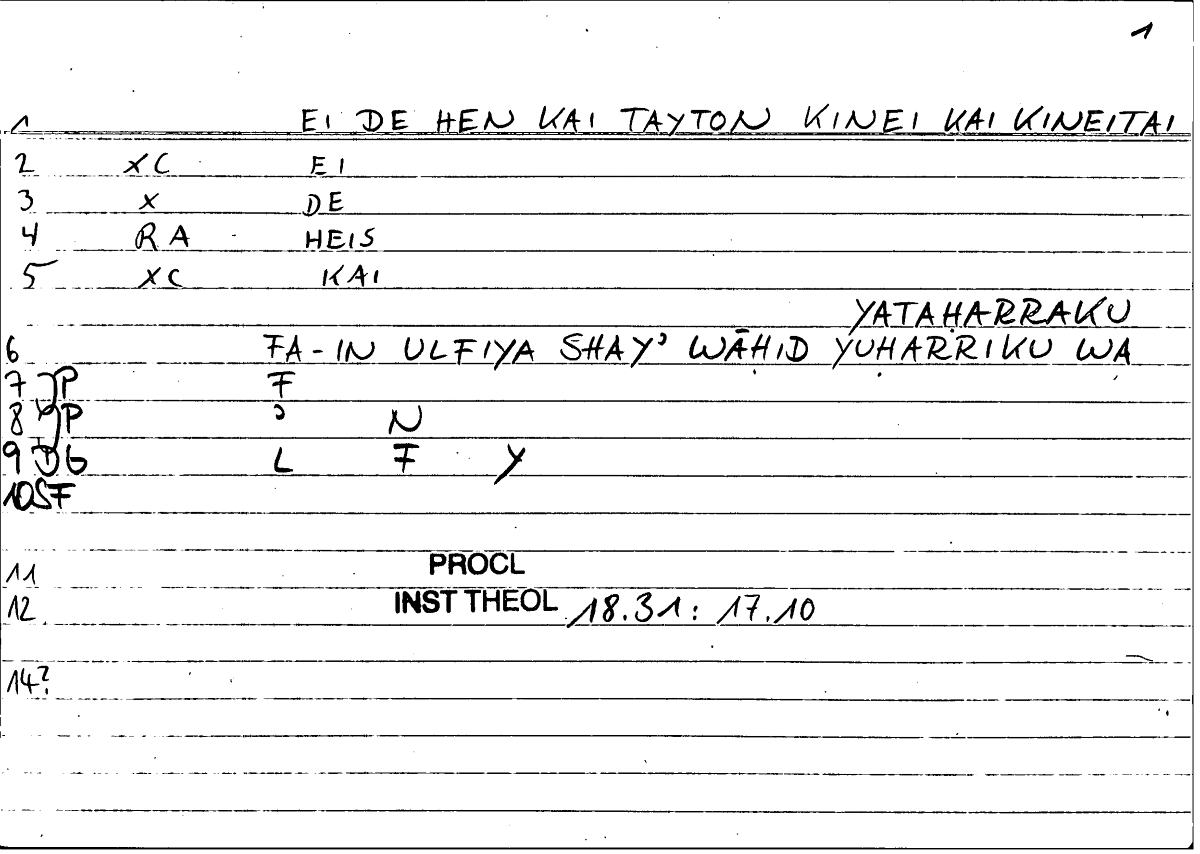 1
1 EI DE HEN KAI TAYTON KINEI KAI KINEITAI
2 XC EI
3 X DE
4 RA HEIS
5 XC KAI
YATAḤARRAKU
6 FA-IN ULFIYA SHAY' WĀḤID YUḤARRIKU WA
7 JP F
8 JP ' N
9 DG L F Y
10 SF
11 PROCL
12 INST THEOL 18.31: 17.10
14?